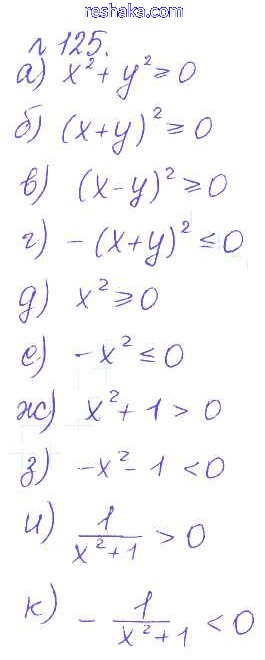 reshaka.com
№ 125.
а) x² + y² ≥ 0
б) (x+y)² ≥ 0
в) (x-y)² ≥ 0
г) -(x+y)² ≤ 0
д) x² ≥ 0
е) -x² ≤ 0
ж) x² + 1 > 0
з) -x² - 1 < 0
и) 1/(x²+1) > 0
к) - 1/(x²+1) < 0